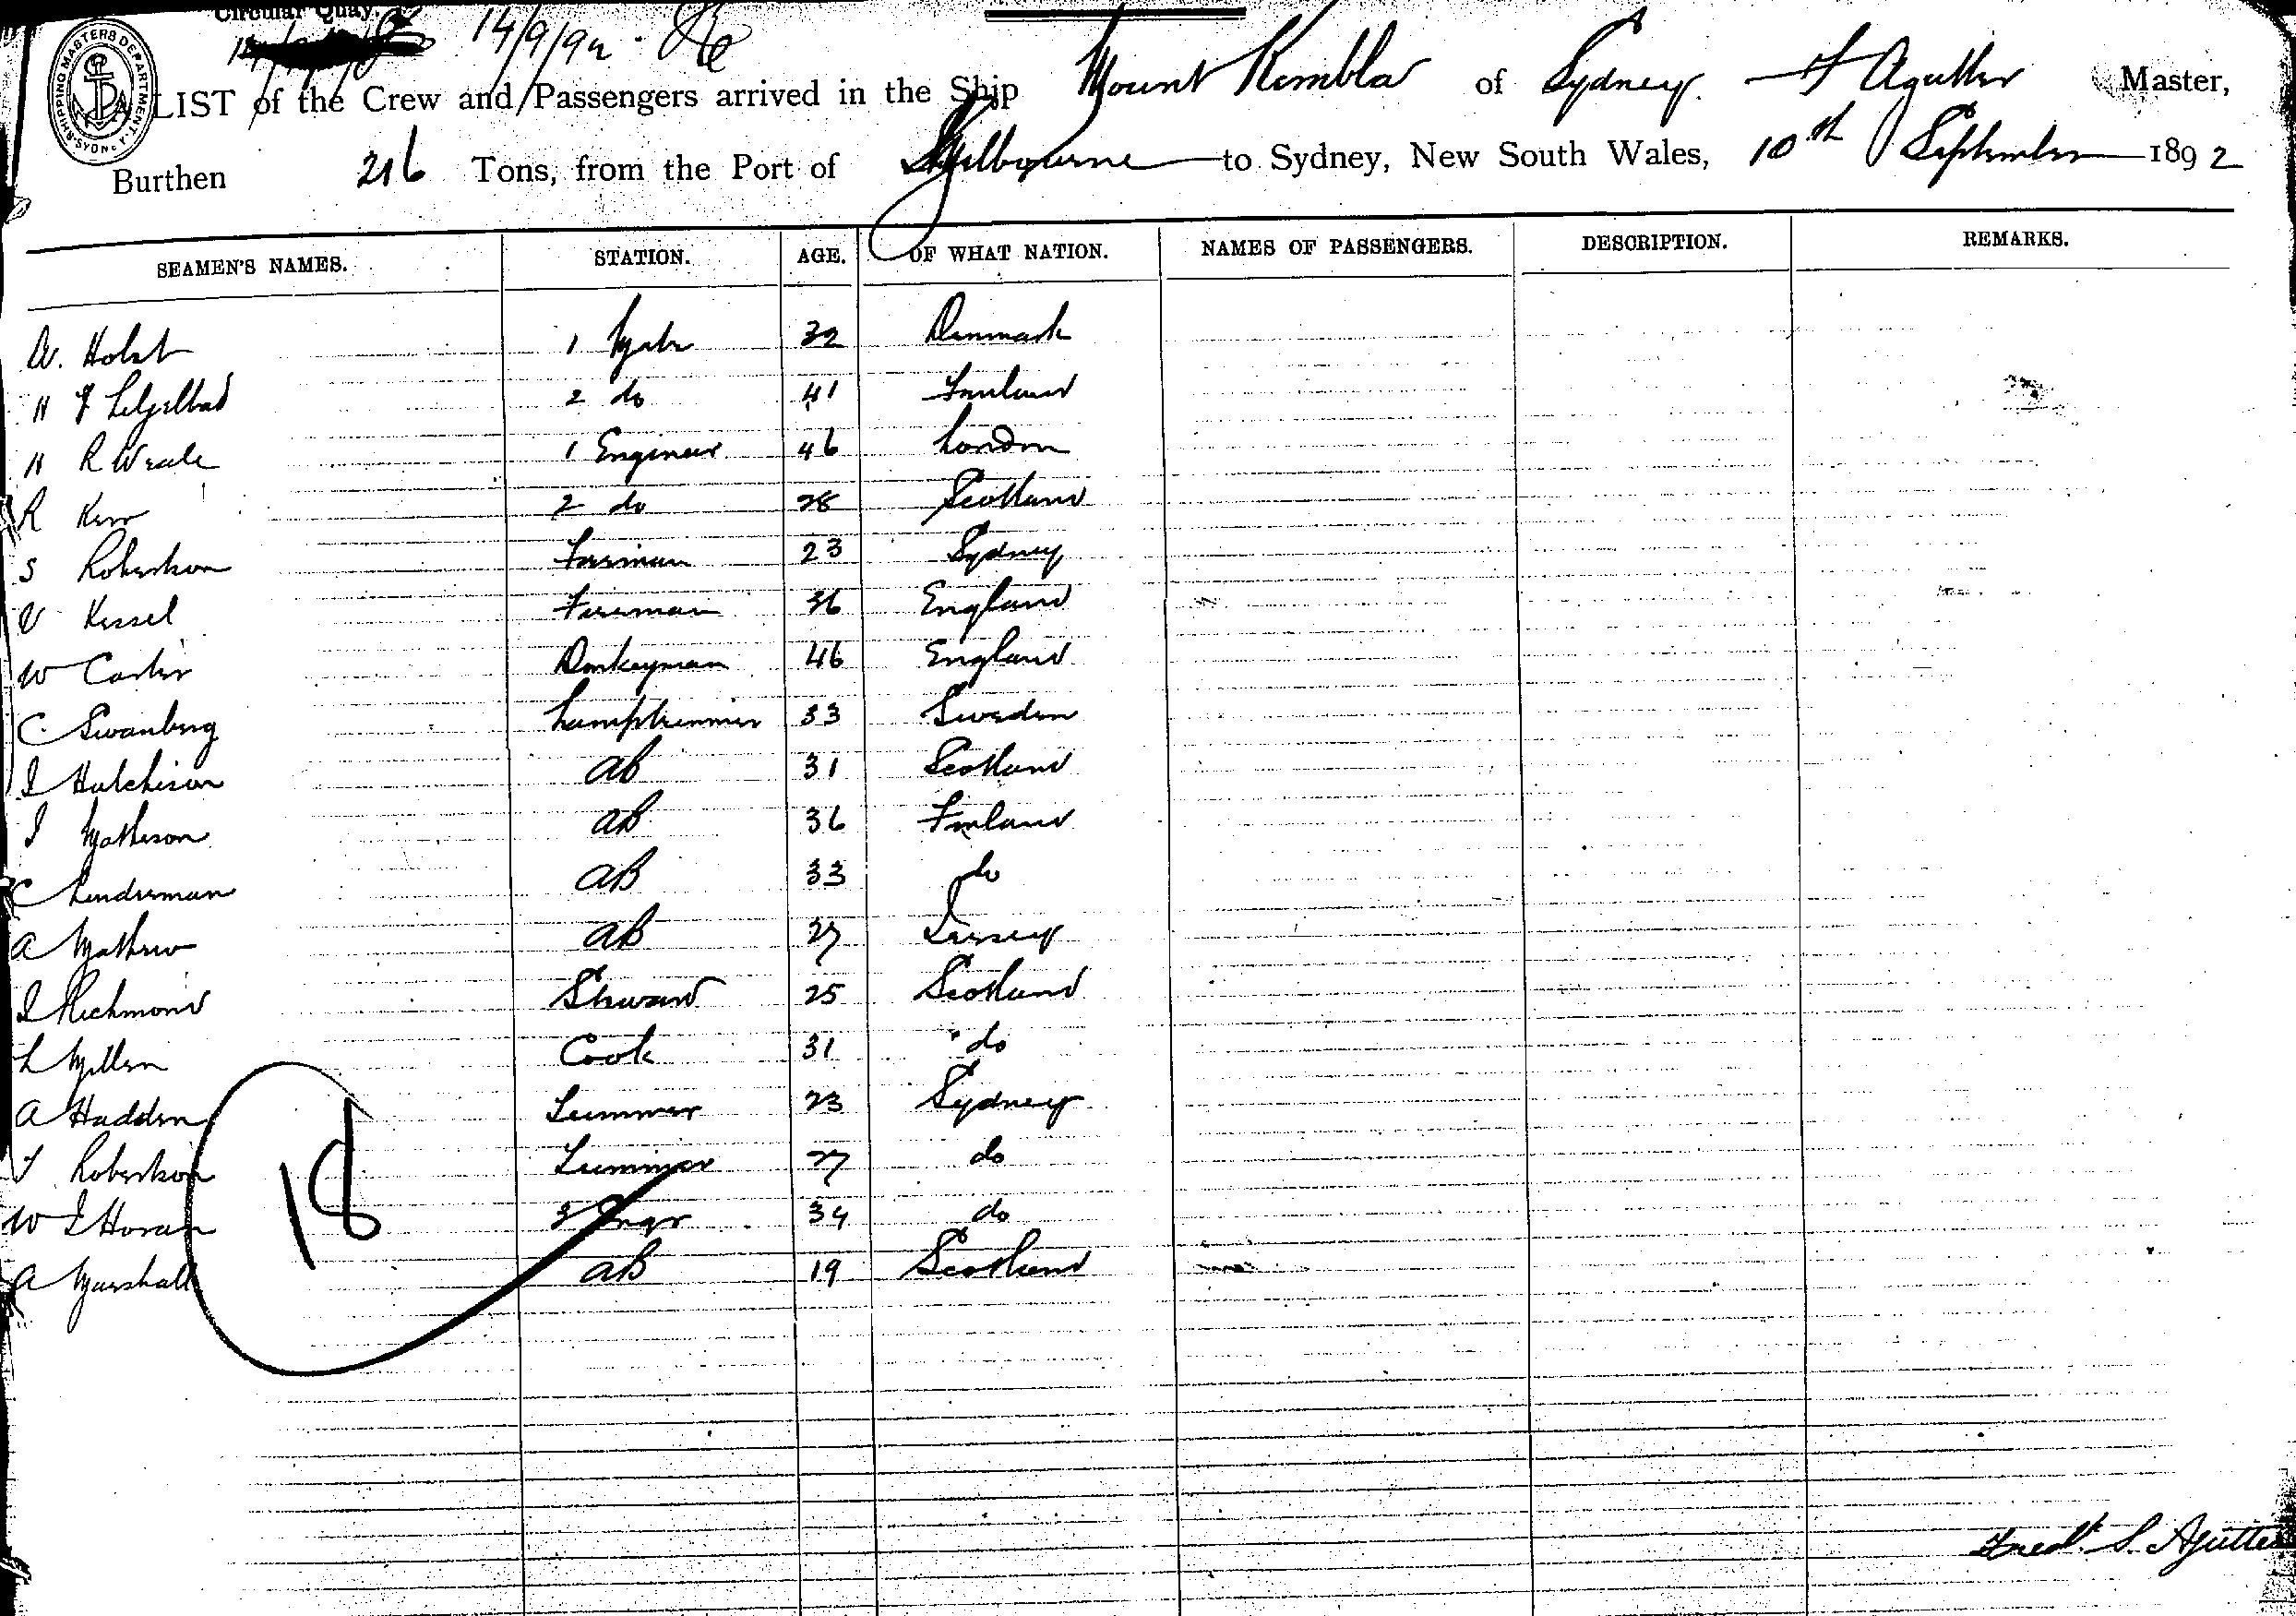 Circular Quay.
14/9/92
SHIPPING MASTERS DEPARTMENT SYDNEY
A LIST of the Crew and Passengers arrived in the Ship Mount Kembla of Sydney F Agutter Master,
Burthen 216 Tons, from the Port of Melbourne to Sydney, New South Wales, 10th September 1892
SEAMEN'S NAMES. STATION. AGE. OF WHAT NATION. NAMES OF PASSENGERS. DESCRIPTION. REMARKS.
W. Holst 1 Mate 32 Denmark
H F 2 do 41 Finland
H R Weale 1 Engineer 46 London
R Kerr 2 do 28 Scotland
S Robertson Fireman 23 Sydney
V Kessel Fireman 36 England
W Carter Donkeyman 46 England
C Swanberg Lamptrimmer 33 Sweden
J Hutchison AB 31 Scotland
J Matheson AB 36 Finland
C Linderman AB 33 do
A Mathew AB 27 Jersey
J Richmond Steward 25 Scotland
L Millen Cook 31 do
A Hadden Trimmer 23 Sydney
T Robertson Trimmer 27 do
W J Horan 3 Engr 34 do
A Marshall AB 19 Scotland
18
Fredk. S. Agutter